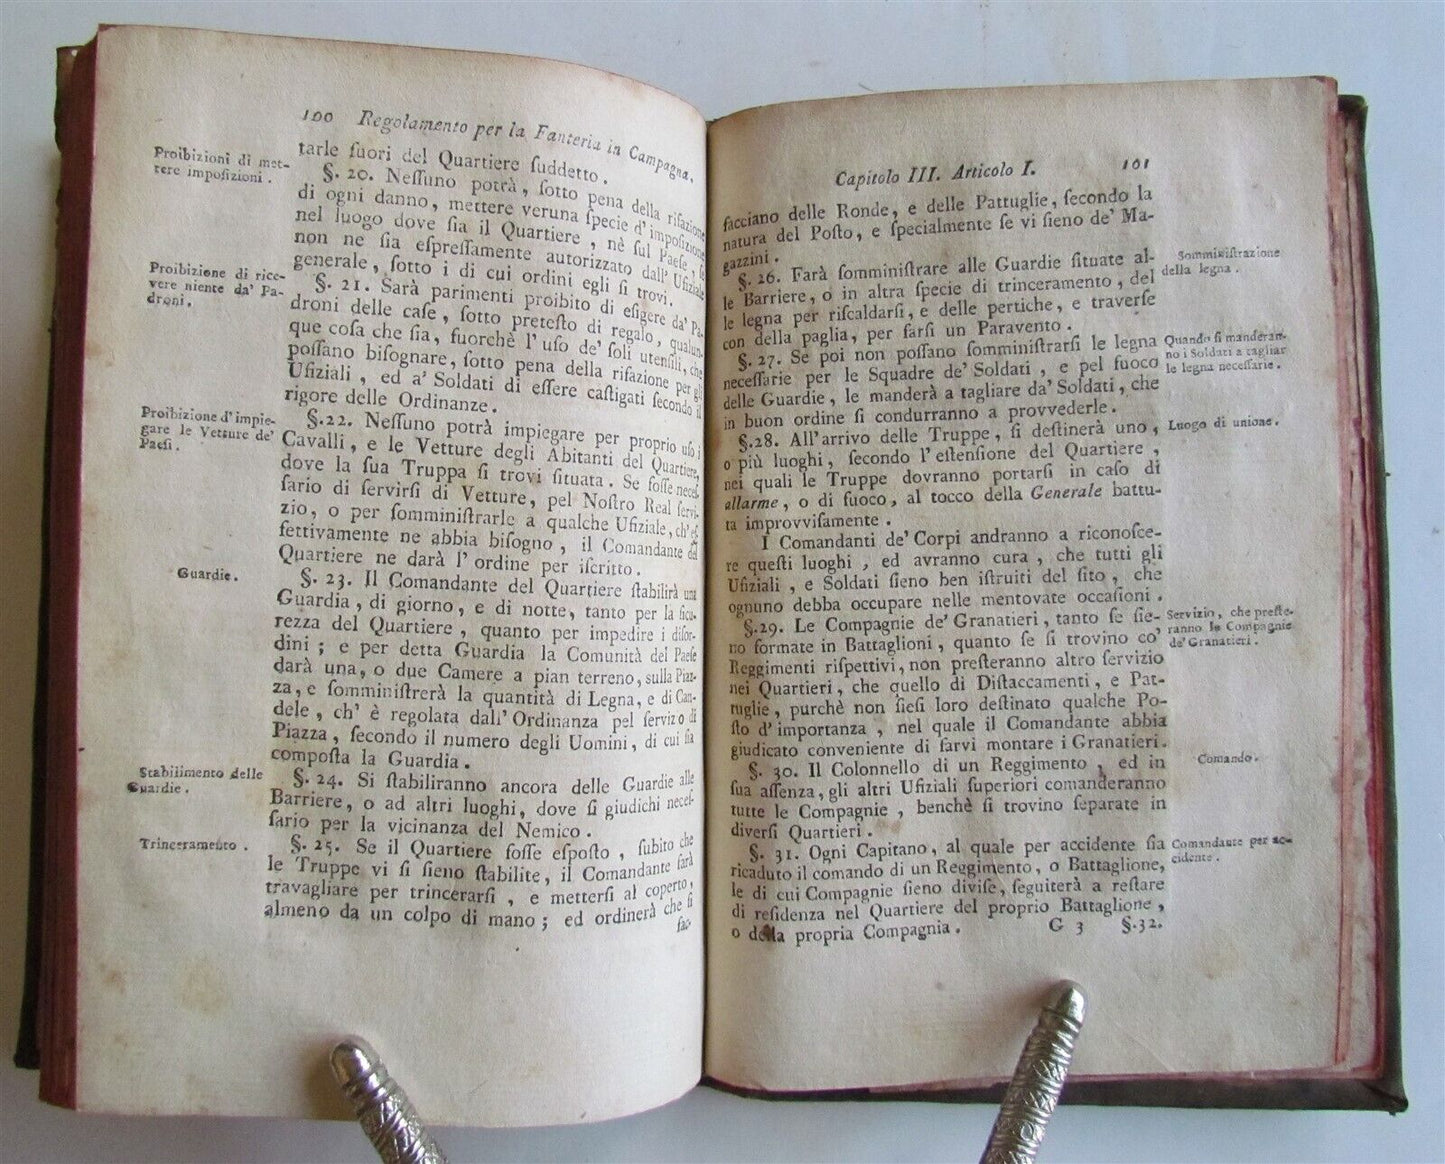 100 Regolamento per la Fanteria in Campagna,
tarle fuori del Quartiere ſuddetto.
Proibizioni di met-
tere impoſizioni.
§. 20. Neſſuno potrà, ſotto pena della rifazione
di ogni danno, mettere veruna ſpecie d'impoſizione
nel luogo dove ſia il Quartiere, nè ſul Paeſe, ſe
non ne ſia eſpreſſamente autorizzato dall' Ufiziale
generale, ſotto i di cui ordini egli ſi trovi.
Proibizione di rice-
vere niente da' Pa-
droni.
§. 21. Sarà parimenti proibito di eſigere da' Pa-
droni delle caſe, ſotto preteſto di regalo, qualun-
que coſa che ſia, fuorchè l' uſo de' ſoli utenſili, che
poſſano biſognare, ſotto pena della rifazione per gli
Ufiziali, ed a' Soldati di eſſere caſtigati ſecondo il
rigore delle Ordinanze.
Proibizione d'impie-
gare le Vetture de'
Paeſi.
§.22. Neſſuno potrà impiegare per proprio uſo i
Cavalli, e le Vetture degli Abitanti del Quartiere,
dove la ſua Truppa ſi trovi ſituata. Se foſſe neceſ-
ſario di ſervirſi di Vetture, pel Noſtro Real ſervi-
zio, o per ſomminiſtrarle a qualche Ufiziale, ch' ef-
fettivamente ne abbia biſogno, il Comandante del
Quartiere ne darà l' ordine per iſcritto.
Guardie.
§. 23. Il Comandante del Quartiere ſtabilirà una
Guardia, di giorno, e di notte, tanto per la ſicu-
rezza del Quartiere, quanto per impedire i diſor-
dini; e per detta Guardia la Comunità del Paeſe
darà una, o due Camere a pian terreno, sulla Piaz-
za, e ſomminiſtrerà la quantità di Legna, e di Can-
dele, ch' è regolata dall' Ordinanza pel ſervizo di
Piazza, ſecondo il numero degli Uomini, di cui ſia
compoſta la Guardia.
Stabilimento delle
Guardie.
§. 24. Si ſtabiliranno ancora delle Guardie alle
Barriere, o ad altri luoghi, dove ſi giudichi neceſ-
ſario per la vicinanza del Nemico.
Trinceramento.
§. 25. Se il Quartiere foſſe eſpoſto, ſubito che
le Truppe vi ſi ſieno ſtabilite, il Comandante farà
travagliare per trincerarſi, e metterſi al coperto,
almeno da un colpo di mano; ed ordinerà che ſi
fac-
Capitolo III. Articolo I. 101
facciano delle Ronde, e delle Pattuglie, ſecondo la
natura del Poſto, e ſpecialmente ſe vi ſieno de' Ma-
gazzini.
Somminiſtrazione
della legna.
§. 26. Farà ſomminiſtrare alle Guardie ſituate al-
le Barriere, o in altra ſpecie di trinceramento, del
le legna per riſcaldarſi, e delle pertiche, e traverſe
con della paglia, per farſi un Paravento.
Quando ſi manderan-
no i Soldati a tagliar
le legna neceſſarie.
§. 27. Se poi non poſſano ſomminiſtrarſi le legna
neceſſarie per le Squadre de' Soldati, e pel fuoco
delle Guardie, le manderà a tagliare da' Soldati, che
in buon ordine ſi condurranno a provvederle.
Luogo di unione.
§.28. All' arrivo delle Truppe, ſi deſtinerà uno,
o più luoghi, ſecondo l' eſtenſione del Quartiere,
nei quali le Truppe dovranno portarſi in caſo di
allarme, o di fuoco, al tocco della Generale battu-
ta improvviſamente.
I Comandanti de' Corpi andranno a riconoſce-
re queſti luoghi, ed avranno cura, che tutti gli
Ufiziali, e Soldati ſieno ben iſtruiti del ſito, che
ognuno debba occupare nelle mentovate occaſioni.
Servizio, che preſte-
ranno le Compagnie
de' Granatieri.
§.29. Le Compagnie de' Granatieri, tanto ſe ſie-
no formate in Battaglioni, quanto ſe ſi trovino co'
Reggimenti riſpettivi, non preſteranno altro ſervizio
nei Quartieri, che quello di Diſtaccamenti, e Pat-
tuglie, purchè non ſieſi loro deſtinato qualche Po-
ſto d' importanza, nel quale il Comandante abbia
giudicato conveniente di farvi montare i Granatieri.
Comando.
§. 30. Il Colonnello di un Reggimento, ed in
ſua aſſenza, gli altri Ufiziali ſuperiori comanderanno
tutte le Compagnie, benchè ſi trovino ſeparate in
diverſi Quartieri.
Comandante per ac-
cidente.
§. 31. Ogni Capitano, al quale per accidente ſia
ricaduto il comando di un Reggimento, o Battaglione,
le di cui Compagnie ſieno diviſe, ſeguiterà a reſtare
di reſidenza nel Quartiere del proprio Battaglione,
o della propria Compagnia.
G 3 §.32.